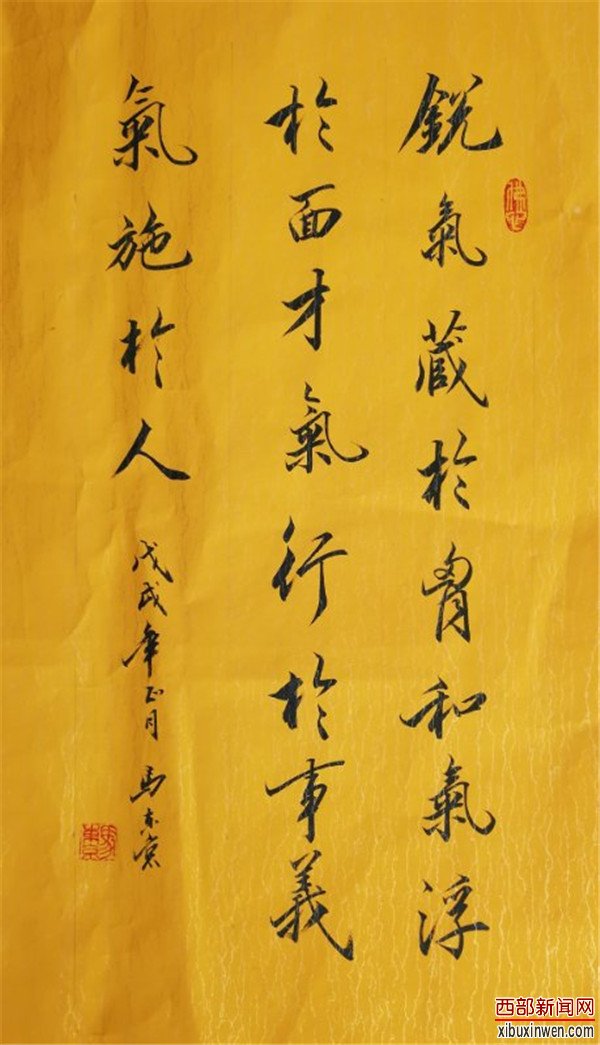 銳氣藏於胷和氣浮
於面才氣行於事義
氣施於人
戊戌年正月 馬東
西部新闻网
xibuxinwen.com